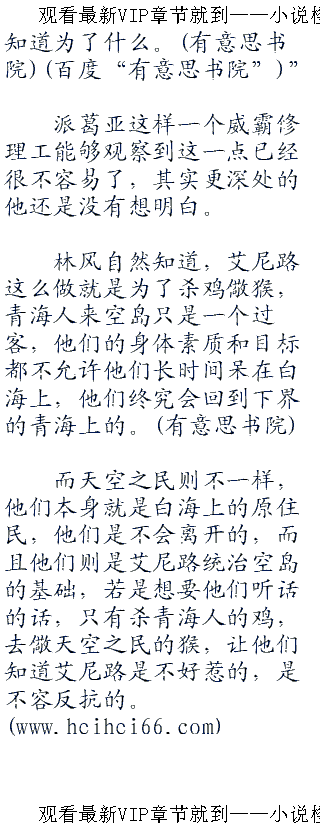 观看最新VIP章节就到——小说
知道为了什么。(有意思书
院)(百度“有意思书院”)”
派葛亚这样一个威霸修
理工能够观察到这一点已经
很不容易了，其实更深处的
他还是没有想明白。
林风自然知道，艾尼路
这么做就是为了杀鸡儆猴，
青海人来空岛只是一个过
客，他们的身体素质和目标
都不允许他们长时间呆在白
海上，他们终究会回到下界
的青海上的。(有意思书院)
而天空之民则不一样，
他们本身就是白海上的原住
民，他们是不会离开的，而
且他们则是艾尼路统治空岛
的基础，若是想要他们听话
的话，只有杀青海人的鸡，
去儆天空之民的猴，让他们
知道艾尼路是不好惹的，是
不容反抗的。
(www.hcihci66.com)
观看最新VIP章节就到——小说